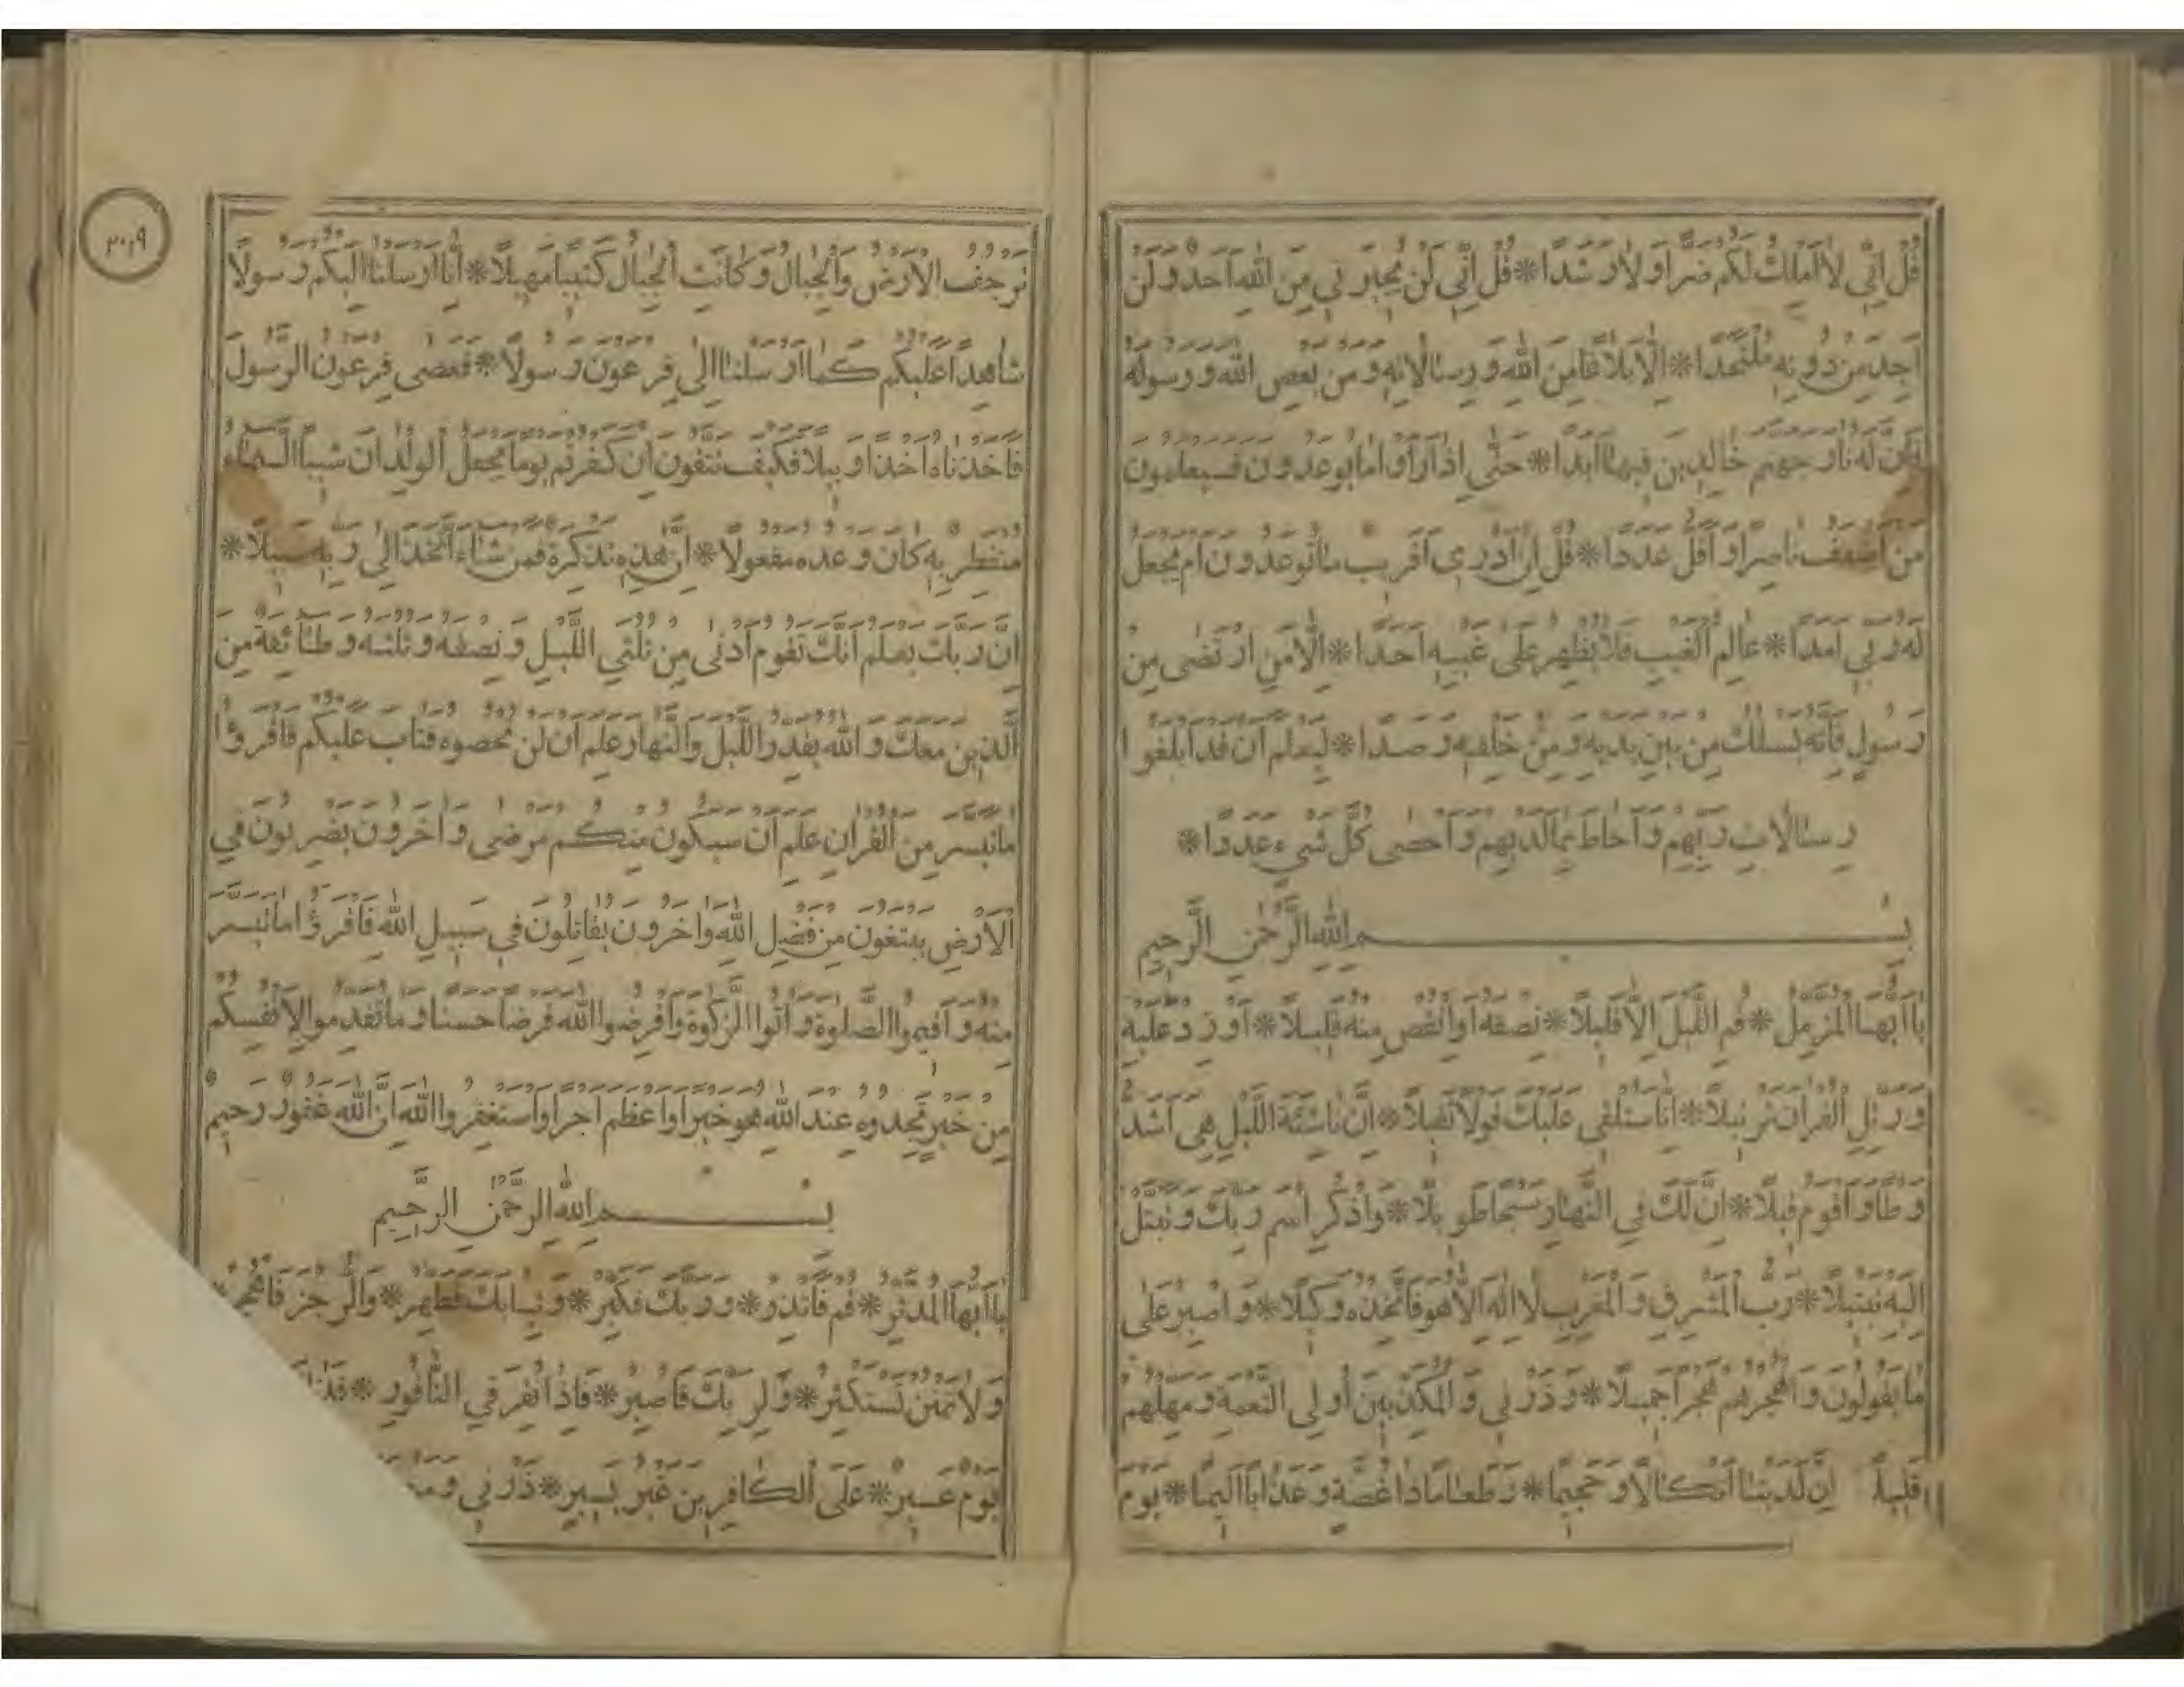 قُلْ اِنّي لَا اَمْلِكُ لَكُمْ ضَرًّا وَلَا رَشَدًا * قُلْ اِنّي لَنْ يُجيرَني مِنَ اللهِ اَحَدٌ وَلَنْ
اَجِدَ مِنْ دُونِهِ مُلْتَحَدًا * اِلَّا بَلَاغًا مِنَ اللهِ وَرِسَالَاتِهِ وَمَنْ يَعْصِ اللهَ وَرَسُولَهُ
فَاِنَّ لَهُ نَارَ جَهَنَّمَ خَالِدينَ فيهَا اَبَدًا * حَتّٰى اِذَا رَاَوْا مَا يُوعَدُونَ فَسَيَعْلَمُونَ
مَنْ اَضْعَفُ نَاصِرًا وَاَقَلُّ عَدَدًا * قُلْ اِنْ اَدْري اَقَريبٌ مَا تُوعَدُونَ اَمْ يَجْعَلُ
لَهُ رَبّي اَمَدًا * عَالِمُ الْغَيْبِ فَلَا يُظْهِرُ عَلٰى غَيْبِهِ اَحَدًا * اِلَّا مَنِ ارْتَضٰى مِنْ
رَسُولٍ فَاِنَّهُ يَسْلُكُ مِنْ بَيْنِ يَدَيْهِ وَمِنْ خَلْفِهِ رَصَدًا * لِيَعْلَمَ اَنْ قَدْ اَبْلَغُوا
رِسَالَاتِ رَبِّهِمْ وَاَحَاطَ بِمَا لَدَيْهِمْ وَاَحْصٰى كُلَّ شَيْءٍ عَدَدًا *
بِسْمِ اللهِ الرَّحْمٰنِ الرَّحيمِ
يَا اَيُّهَا الْمُزَّمِّلُ * قُمِ اللَّيْلَ اِلَّا قَليلًا * نِصْفَهُ اَوِ انْقُصْ مِنْهُ قَليلًا * اَوْ زِدْ عَلَيْهِ
وَرَتِّلِ الْقُرْاٰنَ تَرْتيلًا * اِنَّا سَنُلْقي عَلَيْكَ قَوْلًا ثَقيلًا * اِنَّ نَاشِئَةَ اللَّيْلِ هِيَ اَشَدُّ
وَطْأً وَاَقْوَمُ قيلًا * اِنَّ لَكَ فِي النَّهَارِ سَبْحًا طَويلًا * وَاذْكُرِ اسْمَ رَبِّكَ وَتَبَتَّلْ
اِلَيْهِ تَبْتيلًا * رَبُّ الْمَشْرِقِ وَالْمَغْرِبِ لَا اِلٰهَ اِلَّا هُوَ فَاتَّخِذْهُ وَكيلًا * وَاصْبِرْ عَلٰى
مَا يَقُولُونَ وَاهْجُرْهُمْ هَجْرًا جَميلًا * وَذَرْني وَالْمُكَذِّبينَ اُولِي النَّعْمَةِ وَمَهِّلْهُمْ
قَليلًا اِنَّ لَدَيْنَا اَنْكَالًا وَجَحيمًا * وَطَعَامًا ذَا غُصَّةٍ وَعَذَابًا اَليمًا * يَوْمَ
٣٠٩
تَرْجُفُ الْاَرْضُ وَالْجِبَالُ وَكَانَتِ الْجِبَالُ كَثيبًا مَهيلًا * اِنَّا اَرْسَلْنَا اِلَيْكُمْ رَسُولًا
شَاهِدًا عَلَيْكُمْ كَمَا اَرْسَلْنَا اِلٰى فِرْعَوْنَ رَسُولًا * فَعَصٰى فِرْعَوْنُ الرَّسُولَ
فَاَخَذْنَاهُ اَخْذًا وَبيلًا فَكَيْفَ تَتَّقُونَ اِنْ كَفَرْتُمْ يَوْمًا يَجْعَلُ الْوِلْدَانَ شيبًا السَّمَاءُ
مُنْفَطِرٌ بِهِ كَانَ وَعْدُهُ مَفْعُولًا * اِنَّ هٰذِهِ تَذْكِرَةٌ فَمَنْ شَاءَ اتَّخَذَ اِلٰى رَبِّهِ سَبيلًا *
اِنَّ رَبَّكَ يَعْلَمُ اَنَّكَ تَقُومُ اَدْنٰى مِنْ ثُلُثَيِ اللَّيْلِ وَنِصْفَهُ وَثُلُثَهُ وَطَائِفَةٌ مِنَ
الَّذينَ مَعَكَ وَاللهُ يُقَدِّرُ اللَّيْلَ وَالنَّهَارَ عَلِمَ اَنْ لَنْ تُحْصُوهُ فَتَابَ عَلَيْكُمْ فَاقْرَؤُا
مَا تَيَسَّرَ مِنَ الْقُرْاٰنِ عَلِمَ اَنْ سَيَكُونُ مِنْكُمْ مَرْضٰى وَاٰخَرُونَ يَضْرِبُونَ فِي
الْاَرْضِ يَبْتَغُونَ مِنْ فَضْلِ اللهِ وَاٰخَرُونَ يُقَاتِلُونَ في سَبيلِ اللهِ فَاقْرَؤُا مَا تَيَسَّرَ
مِنْهُ وَاَقيمُوا الصَّلٰوةَ وَاٰتُوا الزَّكٰوةَ وَاَقْرِضُوا اللهَ قَرْضًا حَسَنًا وَمَا تُقَدِّمُوا لِاَنْفُسِكُمْ
مِنْ خَيْرٍ تَجِدُوهُ عِنْدَ اللهِ هُوَ خَيْرًا وَاَعْظَمَ اَجْرًا وَاسْتَغْفِرُوا اللهَ اِنَّ اللهَ غَفُورٌ رَحيمٌ
بِسْمِ اللهِ الرَّحْمٰنِ الرَّحيمِ
يَا اَيُّهَا الْمُدَّثِّرُ * قُمْ فَاَنْذِرْ * وَرَبَّكَ فَكَبِّرْ * وَثِيَابَكَ فَطَهِّرْ * وَالرُّجْزَ فَاهْجُرْ *
وَلَا تَمْنُنْ تَسْتَكْثِرُ * وَلِرَبِّكَ فَاصْبِرْ * فَاِذَا نُقِرَ فِي النَّاقُورِ *
يَوْمٌ عَسيرٌ * عَلَى الْكَافِرينَ غَيْرُ يَسيرٍ * ذَرْني